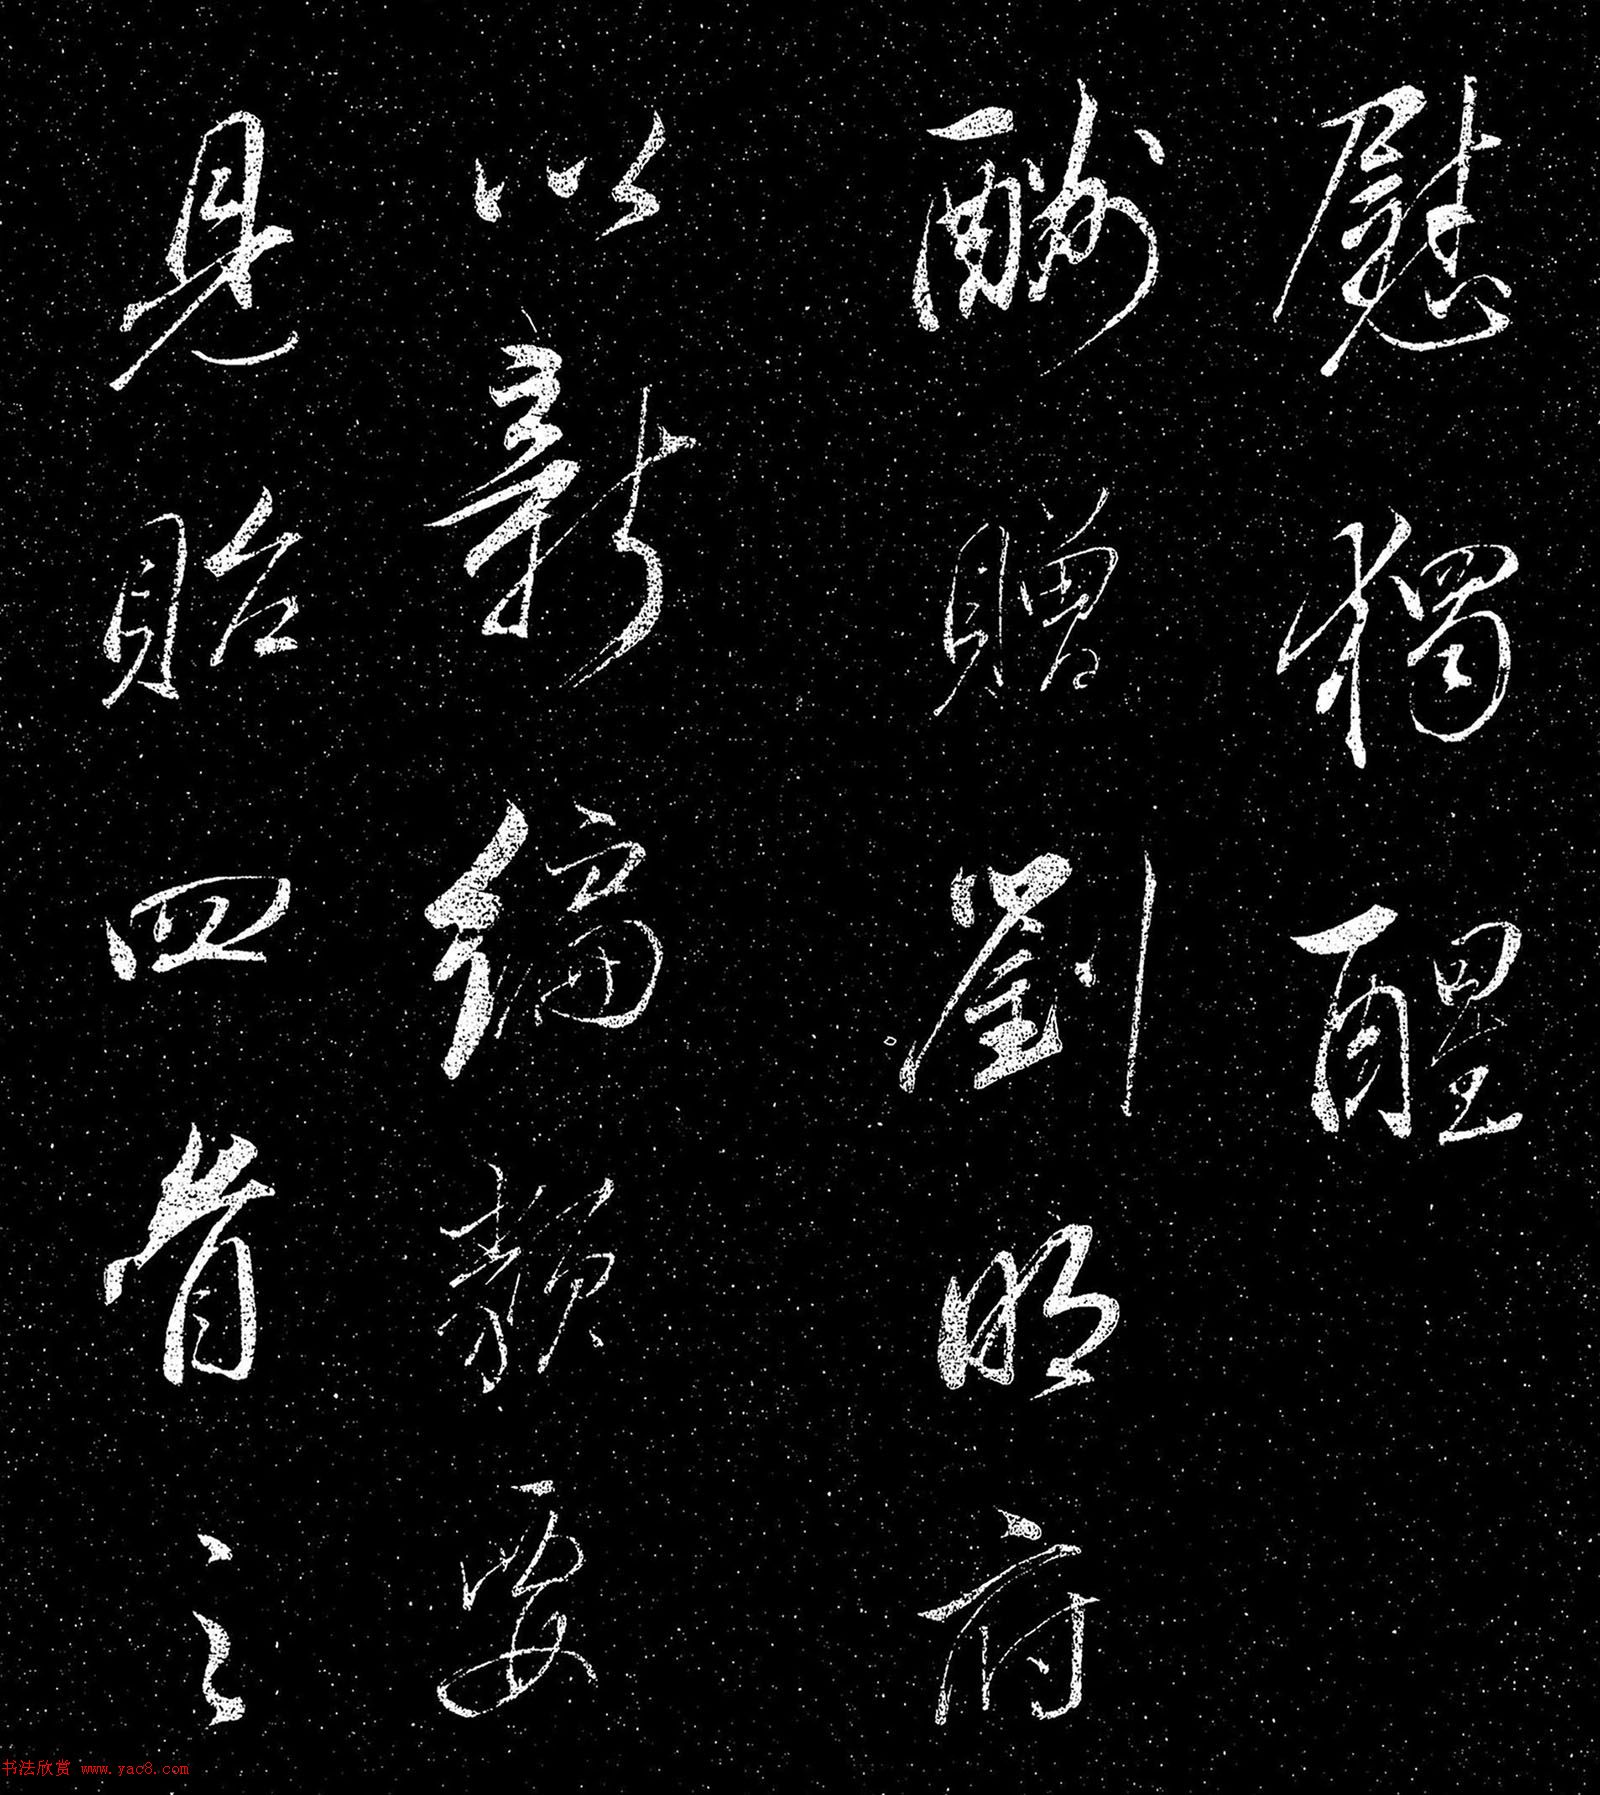 慰獨醒
酬贈劉明府
以新編類要
見貽四首之
书法欣赏 www.yac8.com